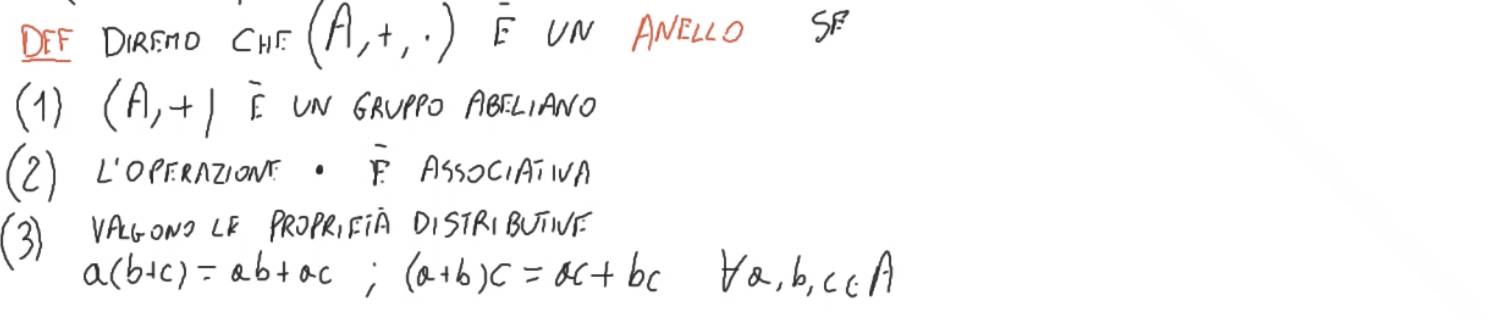 DEF DIREMO CHE (A,+,·) È UN ANELLO SE
(1) (A,+) È UN GRUPPO ABELIANO
(2) L'OPERAZIONE · È ASSOCIATIVA
(3) VALGONO LE PROPRIETÀ DISTRIBUTIVE
a(b+c) = ab + ac ; (a+b)c = ac + bc ∀a,b,c ∈ A